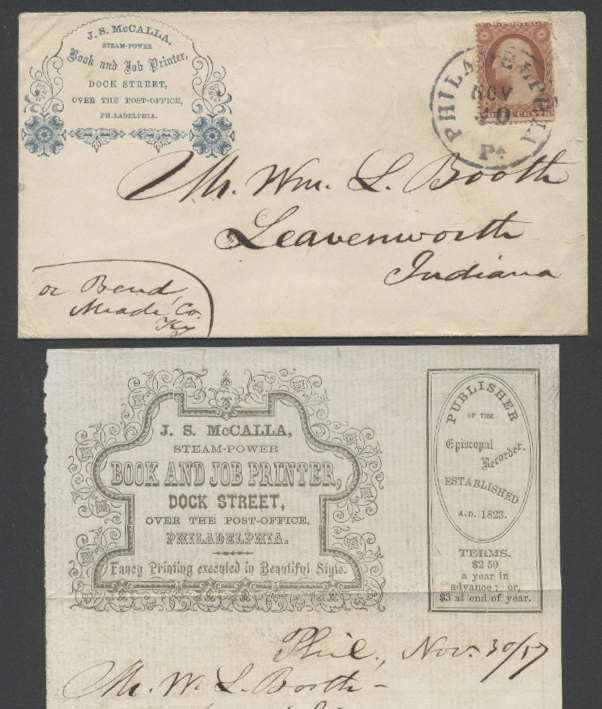 J. S. McCALLA,
STEAM-POWER
Book and Job Printer,
DOCK STREET,
OVER THE POST-OFFICE,
PHILADELPHIA.
PHILADELPHIA
NOV
30
Pa
THREE CENTS
Mr. Wm. L. Booth
Leavenworth
Indiana
or Bend
Meade Co.
Ky
J. S. McCALLA,
STEAM-POWER
BOOK AND JOB PRINTER,
DOCK STREET,
OVER THE POST-OFFICE,
PHILADELPHIA.
Fancy Printing executed in Beautiful Style.
PUBLISHER
OF THE
Episcopal
Recorder.
ESTABLISHED
A.D. 1823.
TERMS.
$2 50
a year in
advance; or,
$3 at end of year.
Phil., Nov. 30/57
Mr. W. L. Booth -